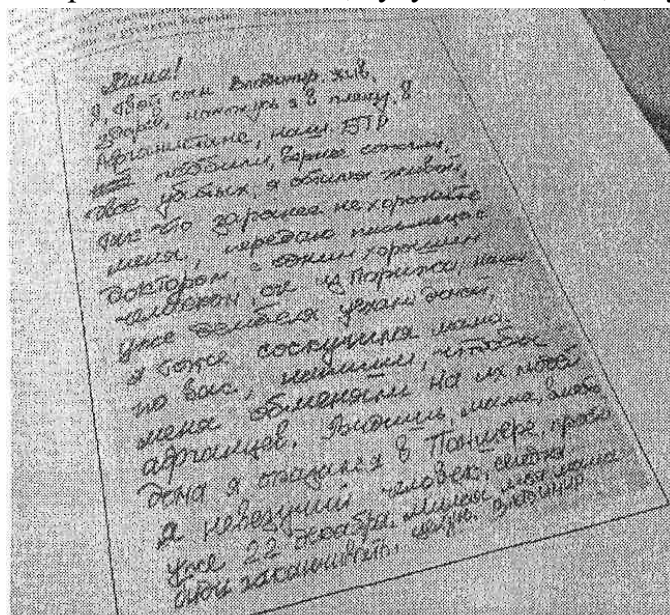 Мама!
Я, твой сын Владимир, жив,
здоров, нахожусь я в плену, в
Афганистане, наш БТР
подбили, вернее сожгли,
двое убитых, я остался живой,
так что заранее не хороните
меня, передаю письмецо с
доктором, с одним хорошим
человеком, он из Парижа, наши
уже дембеля уехали домой,
я тоже соскучился мама
по вас, напиши, чтобы
меня обменяли на их людей
афганцев. Видишь, мама, вместо
дома я оказался в Паншере, право
я невезучий человек, сегодня
уже 22 ноября. Милая моя мама
заканчивать, целую. Владимир